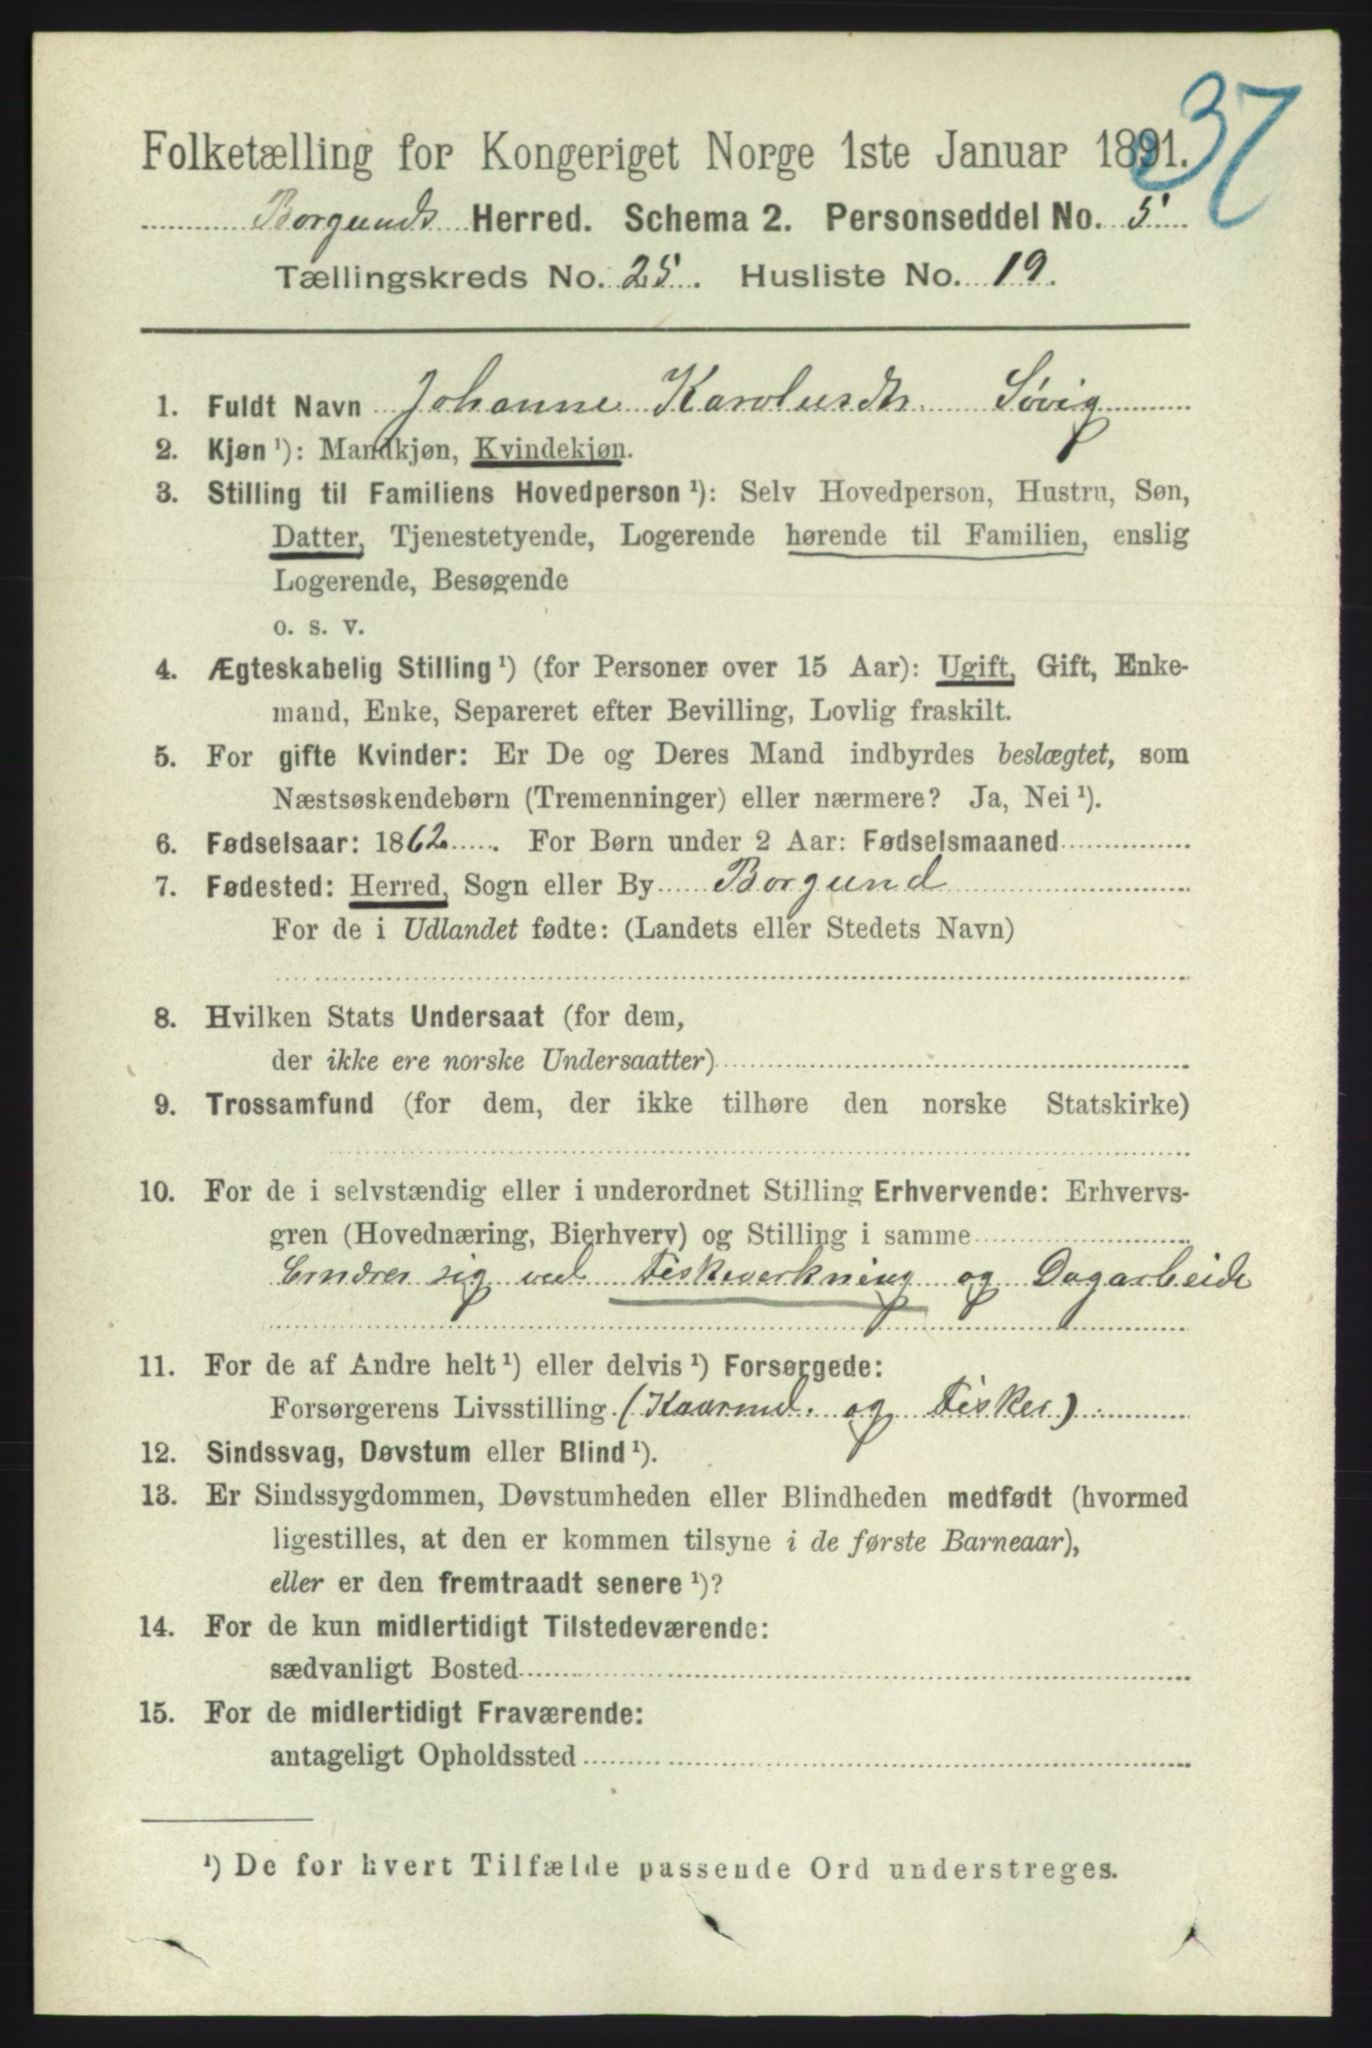 37
Folketælling for Kongeriget Norge 1ste Januar 1891.
Borgunds Herred. Schema 2. Personseddel No. 5
Tællingskreds No. 25. Husliste No. 19.
1. Fuldt Navn Johanne Karolusdtr. Søvig
2. Kjøn ¹): Mandkjøn, Kvindekjøn.
3. Stilling til Familiens Hovedperson ¹): Selv Hovedperson, Hustru, Søn,
Datter, Tjenestetyende, Logerende hørende til Familien, enslig
Logerende, Besøgende
o. s. v.
4. Ægteskabelig Stilling ¹) (for Personer over 15 Aar): Ugift, Gift, Enke-
mand, Enke, Separeret efter Bevilling, Lovlig fraskilt.
5. For gifte Kvinder: Er De og Deres Mand indbyrdes beslægtet, som
Næstsøskendebørn (Tremenninger) eller nærmere? Ja, Nei ¹).
6. Fødselsaar: 1862. For Børn under 2 Aar: Fødselsmaaned
7. Fødested: Herred, Sogn eller By Borgund
For de i Udlandet fødte: (Landets eller Stedets Navn)
8. Hvilken Stats Undersaat (for dem,
der ikke ere norske Undersaatter)
9. Trossamfund (for dem, der ikke tilhøre den norske Statskirke)
10. For de i selvstændig eller i underordnet Stilling Erhvervende: Erhvervs-
gren (Hovednæring, Bierhverv) og Stilling i samme
Ernærer sig ved Fiskeverkning og Dagarbeide
11. For de af Andre helt ¹) eller delvis ¹) Forsørgede:
Forsørgerens Livsstilling (Kaarmd. og Fisker)
12. Sindssvag, Døvstum eller Blind ¹).
13. Er Sindssygdommen, Døvstumheden eller Blindheden medfødt (hvormed
ligestilles, at den er kommen tilsyne i de første Barneaar),
eller er den fremtraadt senere ¹)?
14. For de kun midlertidigt Tilstedeværende:
sædvanligt Bosted
15. For de midlertidigt Fraværende:
antageligt Opholdssted
¹) De for hvert Tilfælde passende Ord understreges.